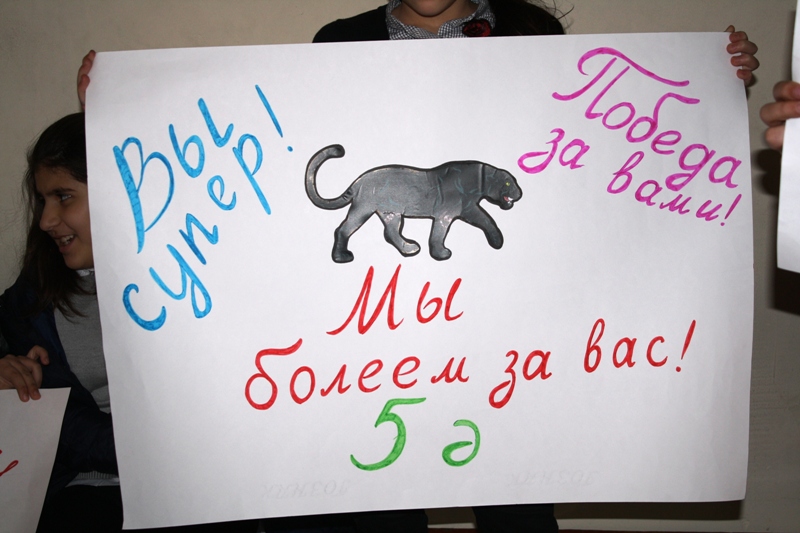 Вы
супер!
Победа
за вами!
Мы
болеем за вас!
5 д